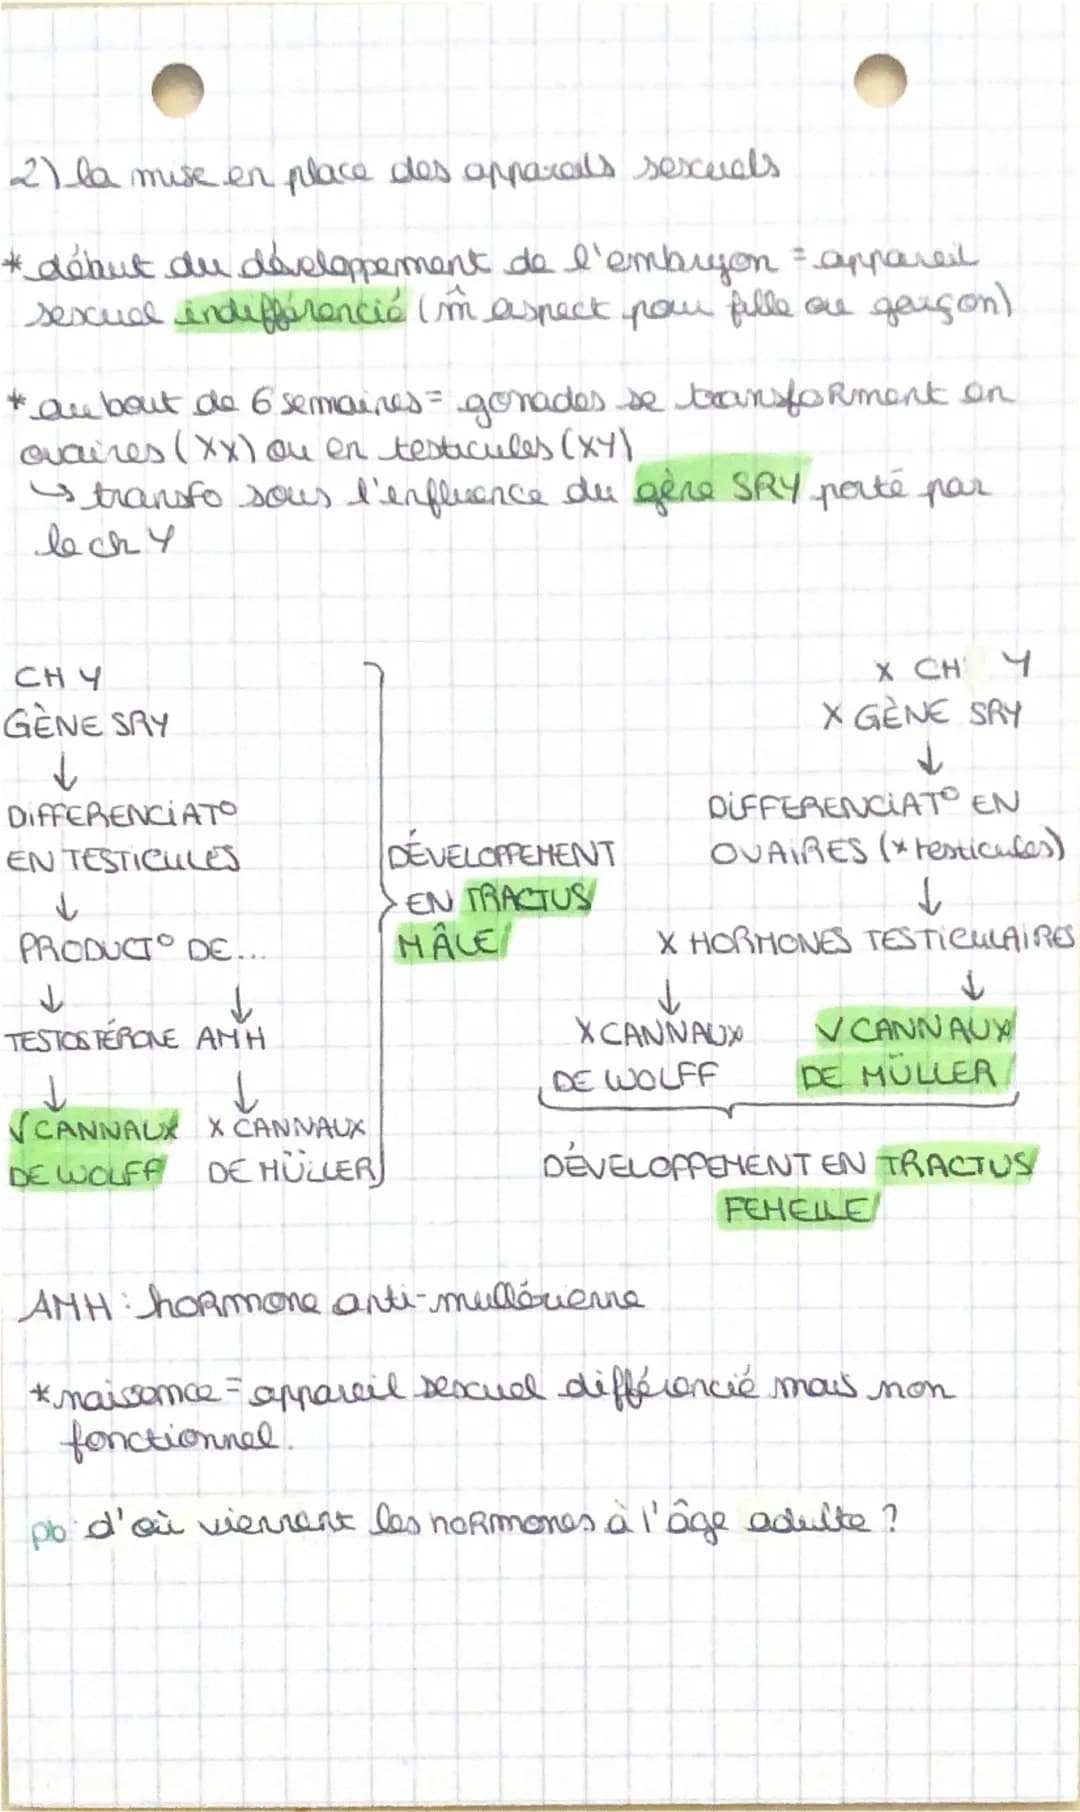 2) la mise en place des appareils sexuels
* début du développement de l'embryon = appareil
sexuel indifférencié (m̂ aspect pour fille ou garçon)
* au bout de 6 semaines = gonades se transforment en
ovaires (XX) ou en testicules (XY)
↳ transfo sous l'influence du gène SRY porté par
le ch Y
CH Y
GÈNE SRY
↓
DIFFERENCIAT°
EN TESTICULES
↓
PRODUCT° DE...
↓ ↓
TESTOSTÉRONE AMH
↓ ↓
√ CANNAUX X CANNAUX
DE WOLFF DE MÜLLER
DÉVELOPPEMENT
EN TRACTUS
MÂLE
X CH Y
X GÈNE SRY
↓
DIFFERENCIAT° EN
OVAIRES (x testicules)
↓
X HORMONES TESTICULAIRES
↓ ↓
X CANNAUX √ CANNAUX
DE WOLFF DE MÜLLER
DÉVELOPPEMENT EN TRACTUS
FEMELLE
AMH : hormone anti-mullérienne
* naissance = appareil sexuel différencié mais non
fonctionnel.
pb : d'où viennent les hormones à l'âge adulte ?